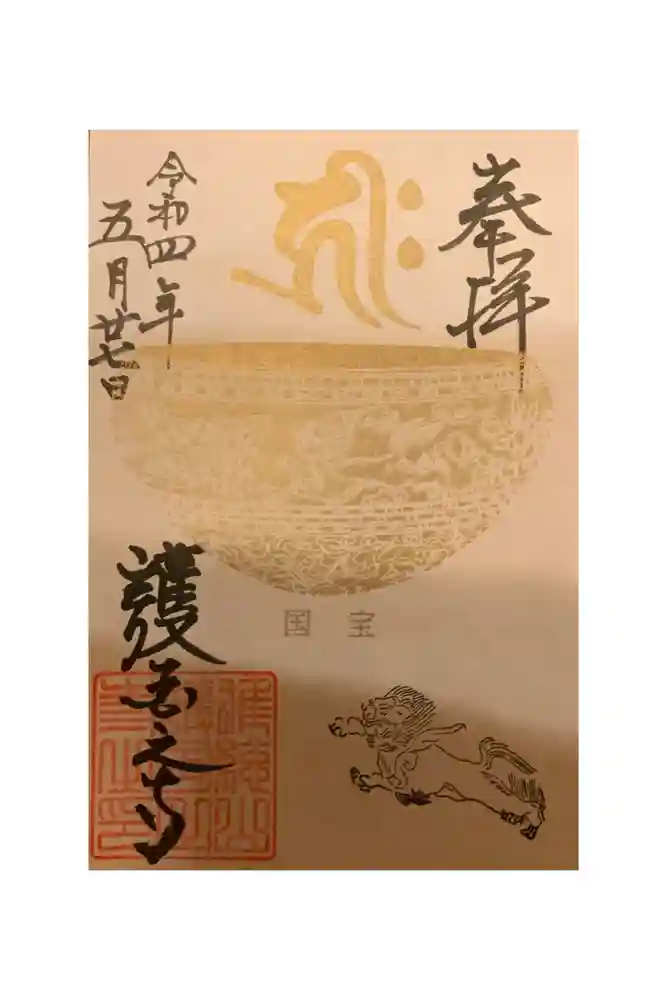 奉拝
国宝
護国之寺
令和四年
五月廿七日